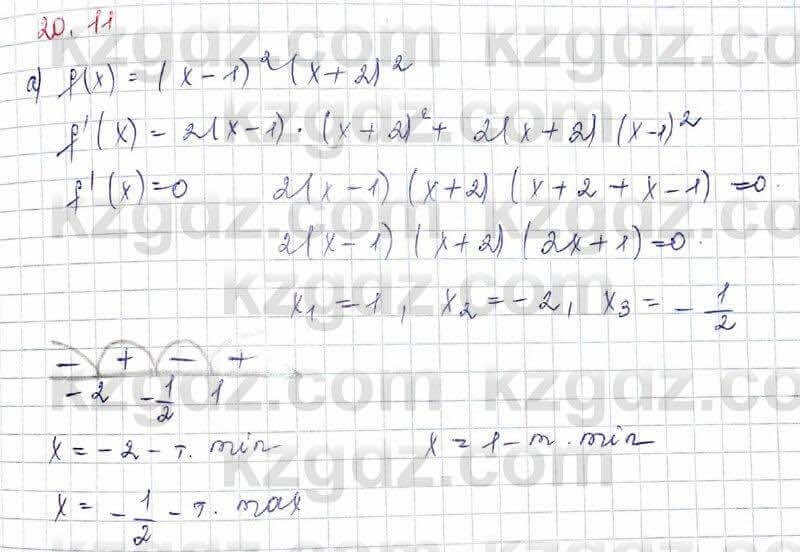 20.11
а) f(x) = (x-1)²(x+2)²
f'(x) = 2(x-1)·(x+2)² + 2(x+2)(x-1)²
f'(x)=0 2(x-1)(x+2)(x+2+x-1)=0.
2(x-1)(x+2)(2x+1)=0.
x₁=1, x₂=-2, x₃=-1/2
- + - +
-2 -1/2 1
x=-2-т. min x=1-т. min
x=-1/2-т. max
kzgdz.com
kzgdz.com
kzgdz.com
kzgdz.com
kzgdz.com
kzgdz.com